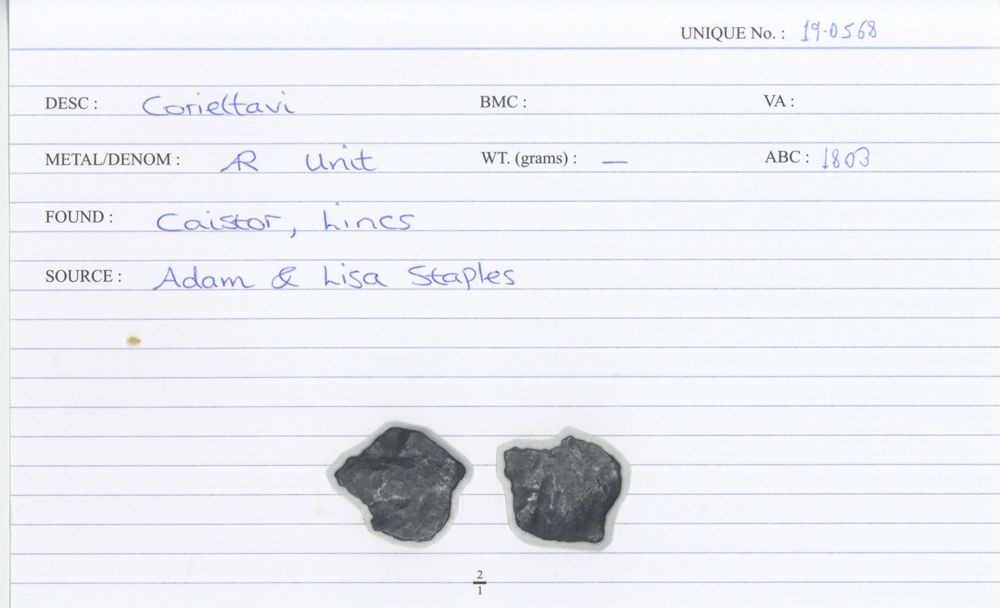 UNIQUE No. : 19-0568
DESC : Corieltavi BMC : VA :
METAL/DENOM : AR Unit WT. (grams) : — ABC : 1803
FOUND : Caistor, Lincs
SOURCE : Adam & Lisa Staples
2
1